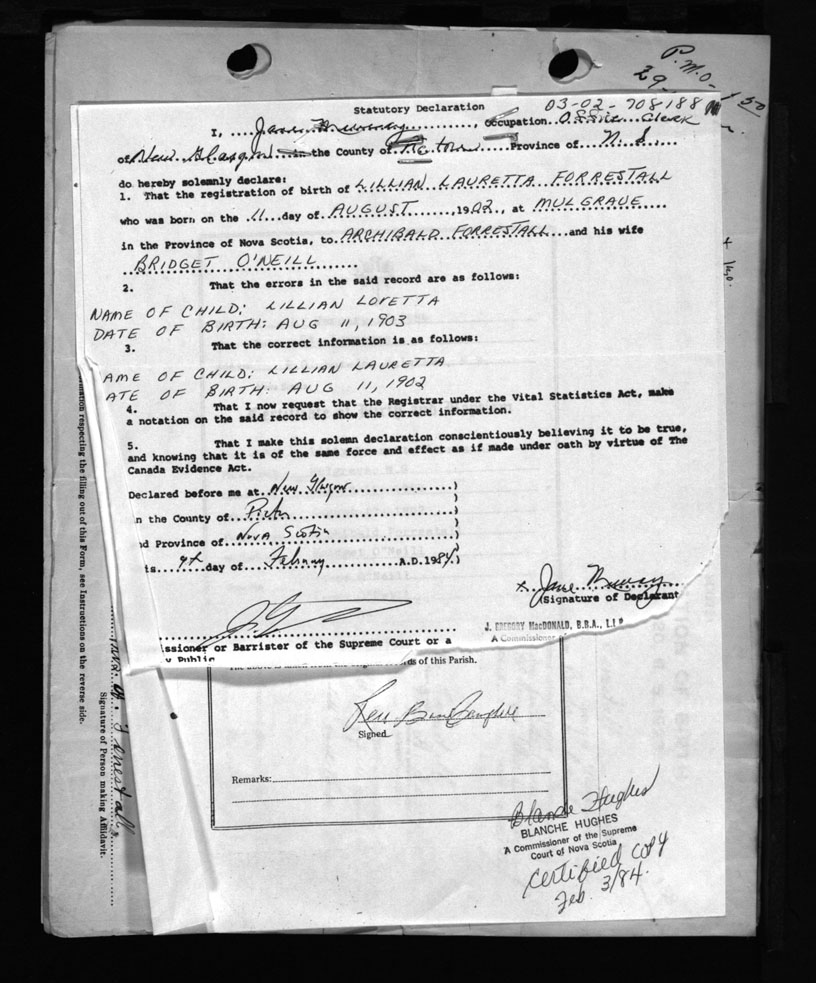 P.M.O.
29-
1.50
Statutory Declaration 03-02-708188
I, .... Jane ........, Occupation... Office Clerk
of New Glasgow in the County of Pictou Province of N.S.
do hereby solemnly declare:
1. That the registration of birth of LILLIAN LAURETTA FORRESTALL
who was born on the 11 day of AUGUST, 1902, at MULGRAVE
in the Province of Nova Scotia, to ARCHIBALD FORRESTALL and his wife
BRIDGET O'NEILL
2. That the errors in the said record are as follows:
NAME OF CHILD: LILLIAN LORETTA
DATE OF BIRTH: AUG 11, 1903
3. That the correct information is as follows:
AME OF CHILD: LILLIAN LAURETTA
ATE OF BIRTH: AUG 11, 1902
4. That I now request that the Registrar under the Vital Statistics Act, make
a notation on the said record to show the correct information.
5. That I make this solemn declaration conscientiously believing it to be true,
and knowing that it is of the same force and effect as if made under oath by virtue of The
Canada Evidence Act.
Declared before me at New Glasgow )
n the County of Pictou )
d Province of Nova Scotia )
is day of February A.D. 1984 )
x Jane
(Signature of Declarant
J. GREGORY MacDONALD, B.B.A., LL
A Commissioner of
issioner or Barrister of the Supreme Court or a
y Public
of this Parish.
Signed
Remarks:
Blanche Hughes
BLANCHE HUGHES
A Commissioner of the Supreme
Court of Nova Scotia
Certified Copy
Feb. 3/84.
rmation respecting the filling out of this Form, see Instructions on the reverse side.
Forrestall
Signature of Person making Affidavit.